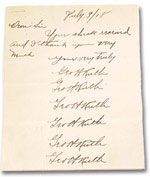 July 9/18
Dear Sir
Your check received
and I thank you very
much
yours very truly
Geo H Ruth
Geo H Ruth
Geo H Ruth
Geo H Ruth
Geo H Ruth
Geo H Ruth